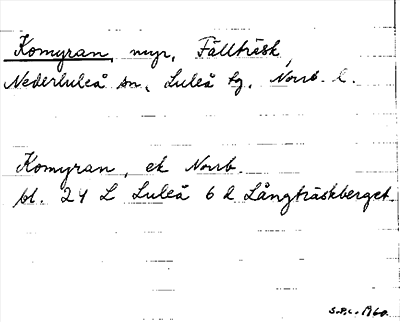 Komyran, myr, Fällträsk,
Nederluleå sn, Luleå tg, Norrb. l.
Komyran, ek Norrb.
bl. 24 L Luleå 6 d Långträskberget.
S.P.C. 1960